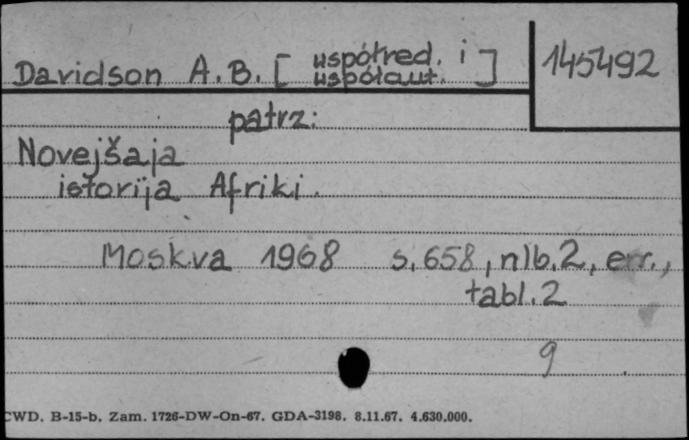 Davidson A.B. [ współred. i współaut. ] 145492
patrz:
Novejšaja
istorija Afriki.
Moskva 1968 s. 658, nlb. 2, err.,
tabl. 2
9
CWD. B-15-b. Zam. 1726-DW-On-67. GDA-3198. 8.11.67. 4.630.000.